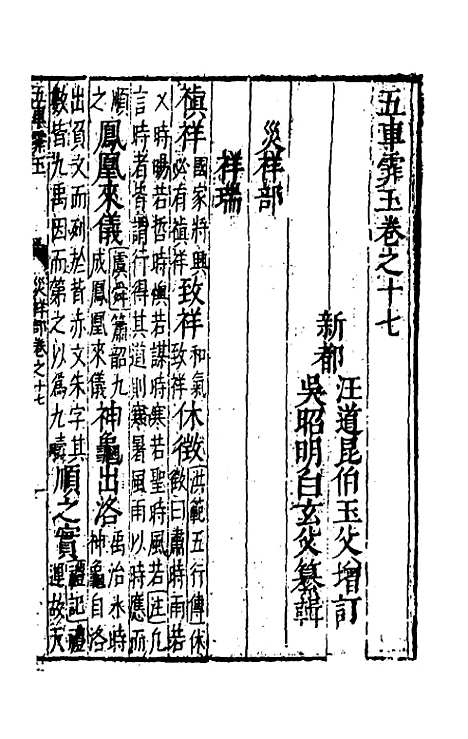 五車霏玉卷之十七
新都
汪道昆伯玉父增訂
吳昭明自玄父纂輯
災祥部
祥瑞
禎祥 國家將興必有禎祥 致祥 和氣致祥 休徵 洪範五行傳休徵曰肅時雨若
乂時暘若哲時燠若謀時寒若聖時風若 注 凡
言時者皆謂行得其道則寒暑風雨以時應而
順之 鳳凰來儀 虞舜簫韶九成鳳凰來儀 神龜出洛 禹治水時神龜自洛
出負文而列於背赤文朱字其
數皆九禹因而第之以爲九疇 順之實 禮記禮運故天
五車霏玉 災祥部卷之十七 一